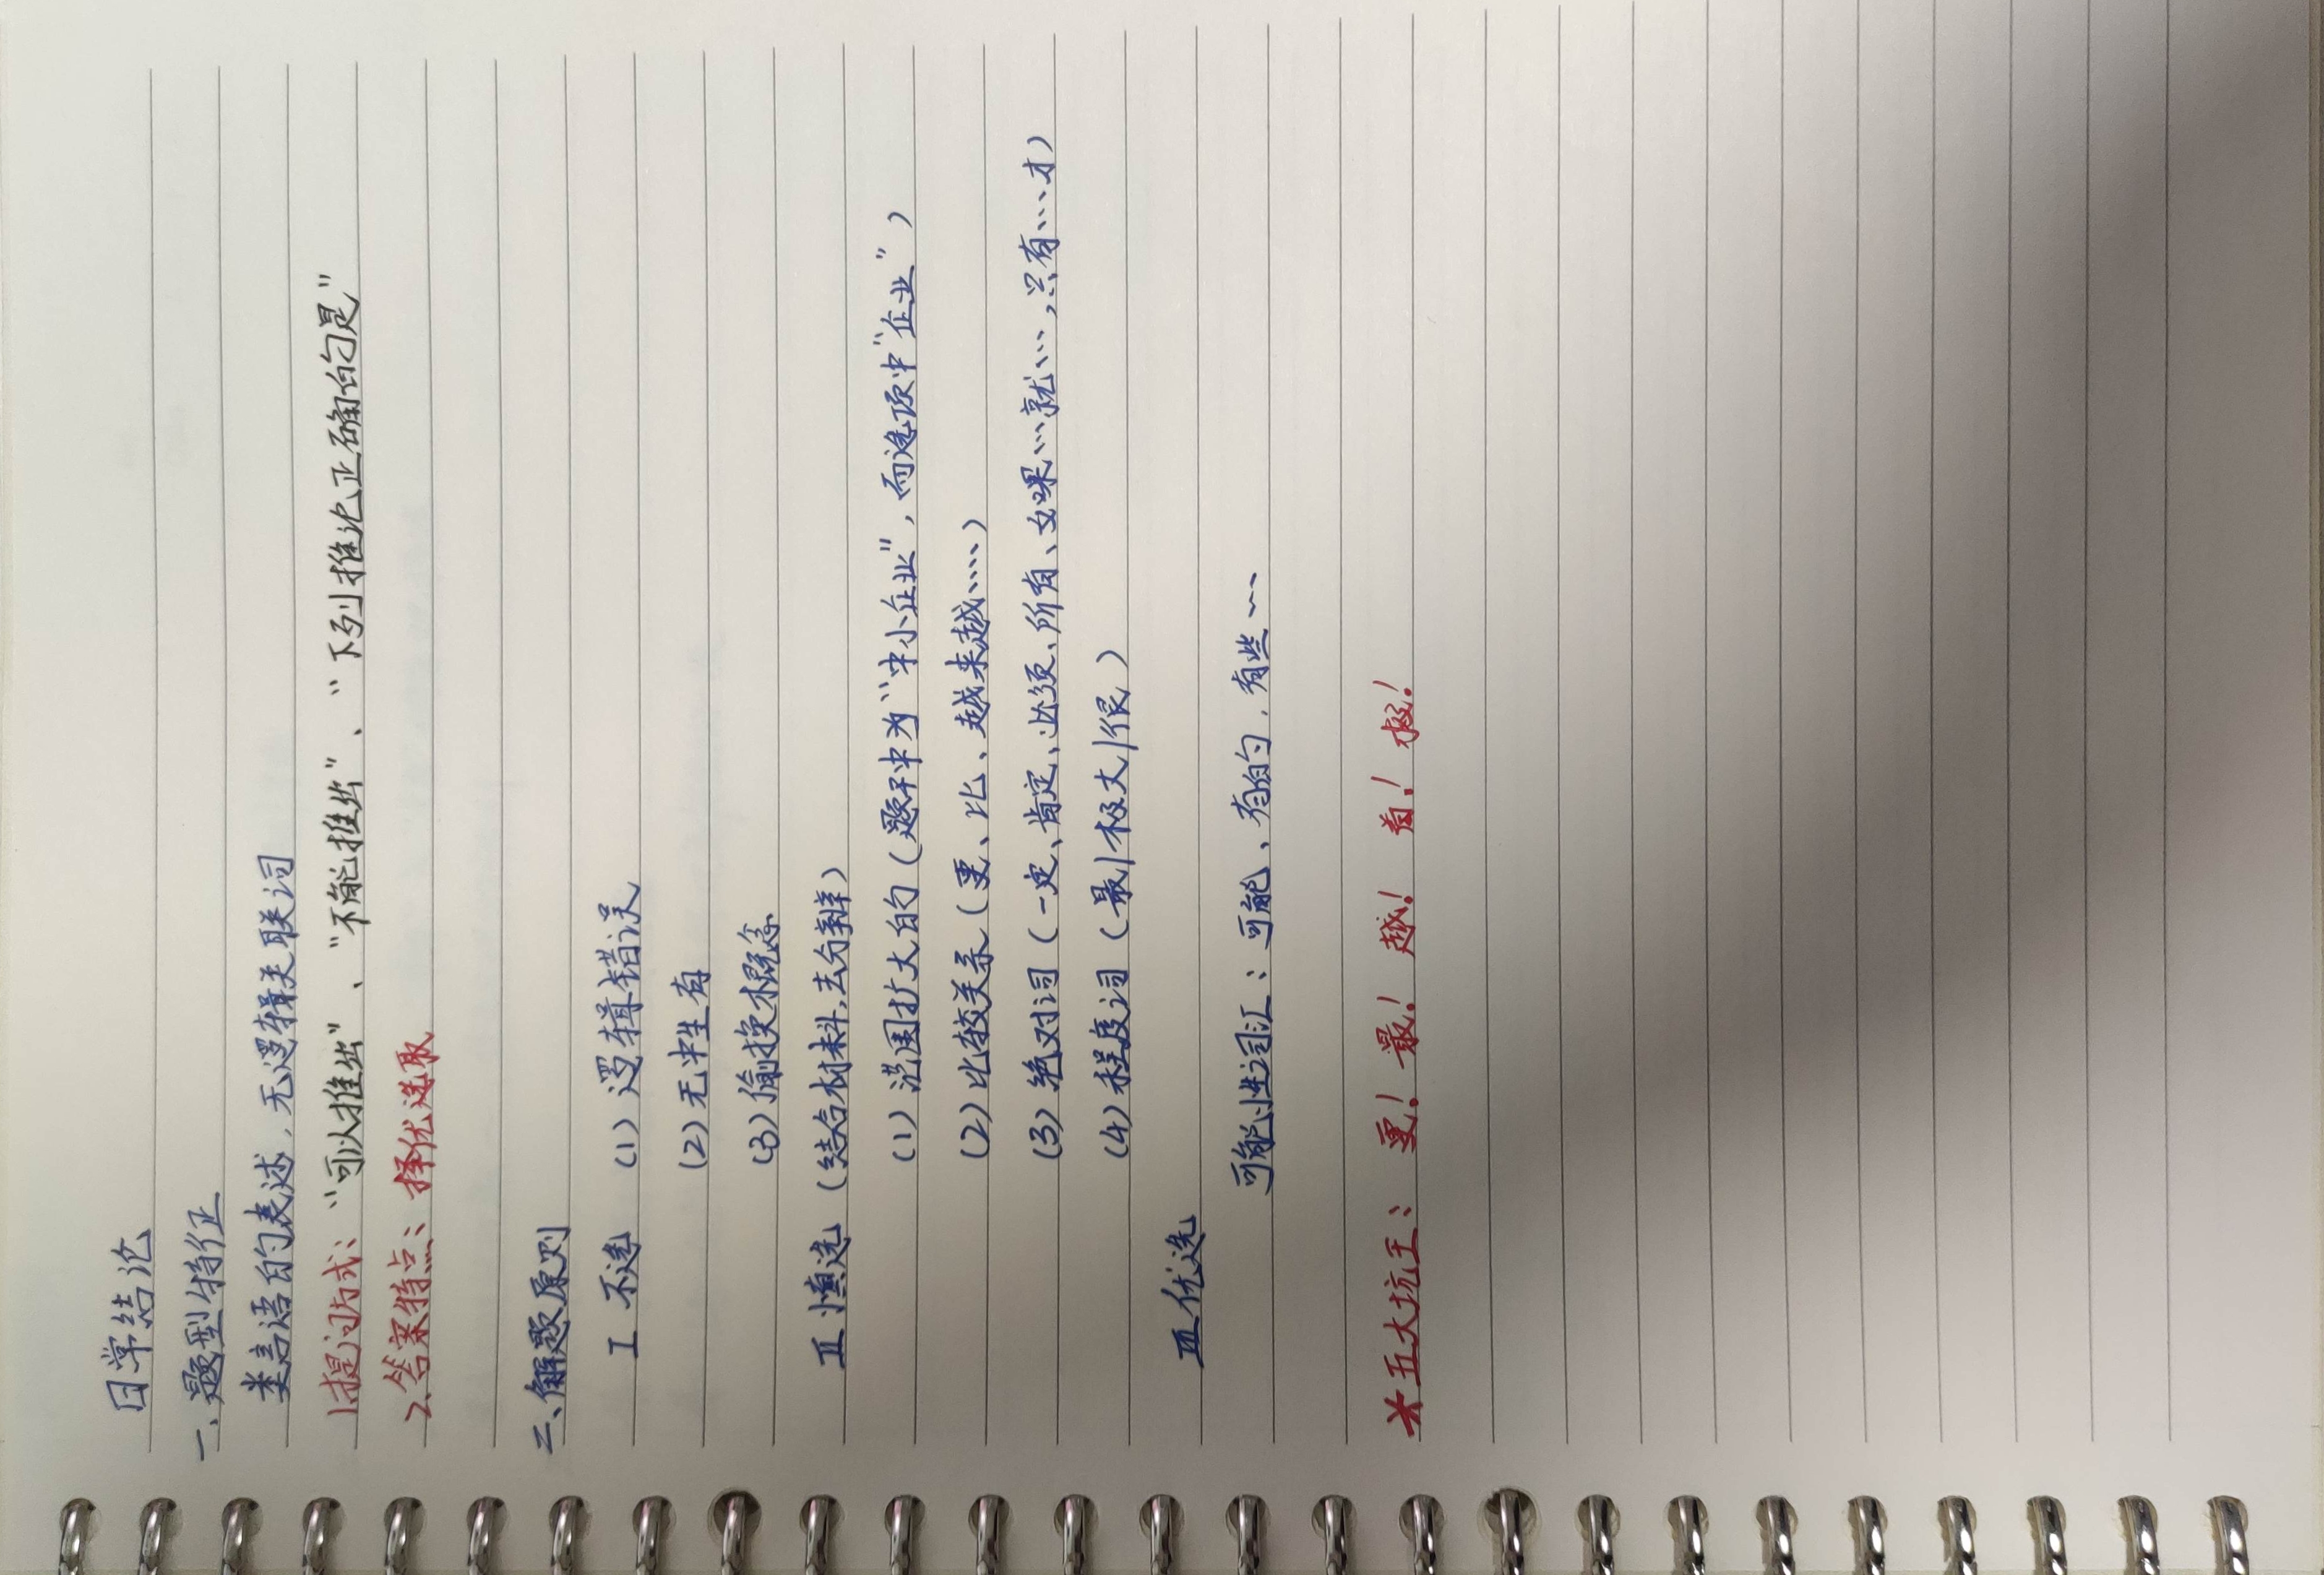 日常结论
一、题型特征
类言语的表述，无逻辑关联词
1.提问方式：“可以推出”、“不能推出”、“下列推论正确的是”
2.答案特点：择优选取
二、解题原则
Ⅰ 不选 （1）逻辑错误
（2）无中生有
（3）偷换概念
Ⅱ 慎选（结合材料，去分辨）
（1）范围扩大的（题干中为“中小企业”，而选项中“企业”）
（2）比较关系（更、比、越来越……）
（3）绝对词（一定、肯定、必须、所有、如果…就…，只有…才）
（4）程度词（最/极大/很）
Ⅲ 优选
可能性词汇：可能、有的，有些…
*五大坑王：更！最！越！首！极！